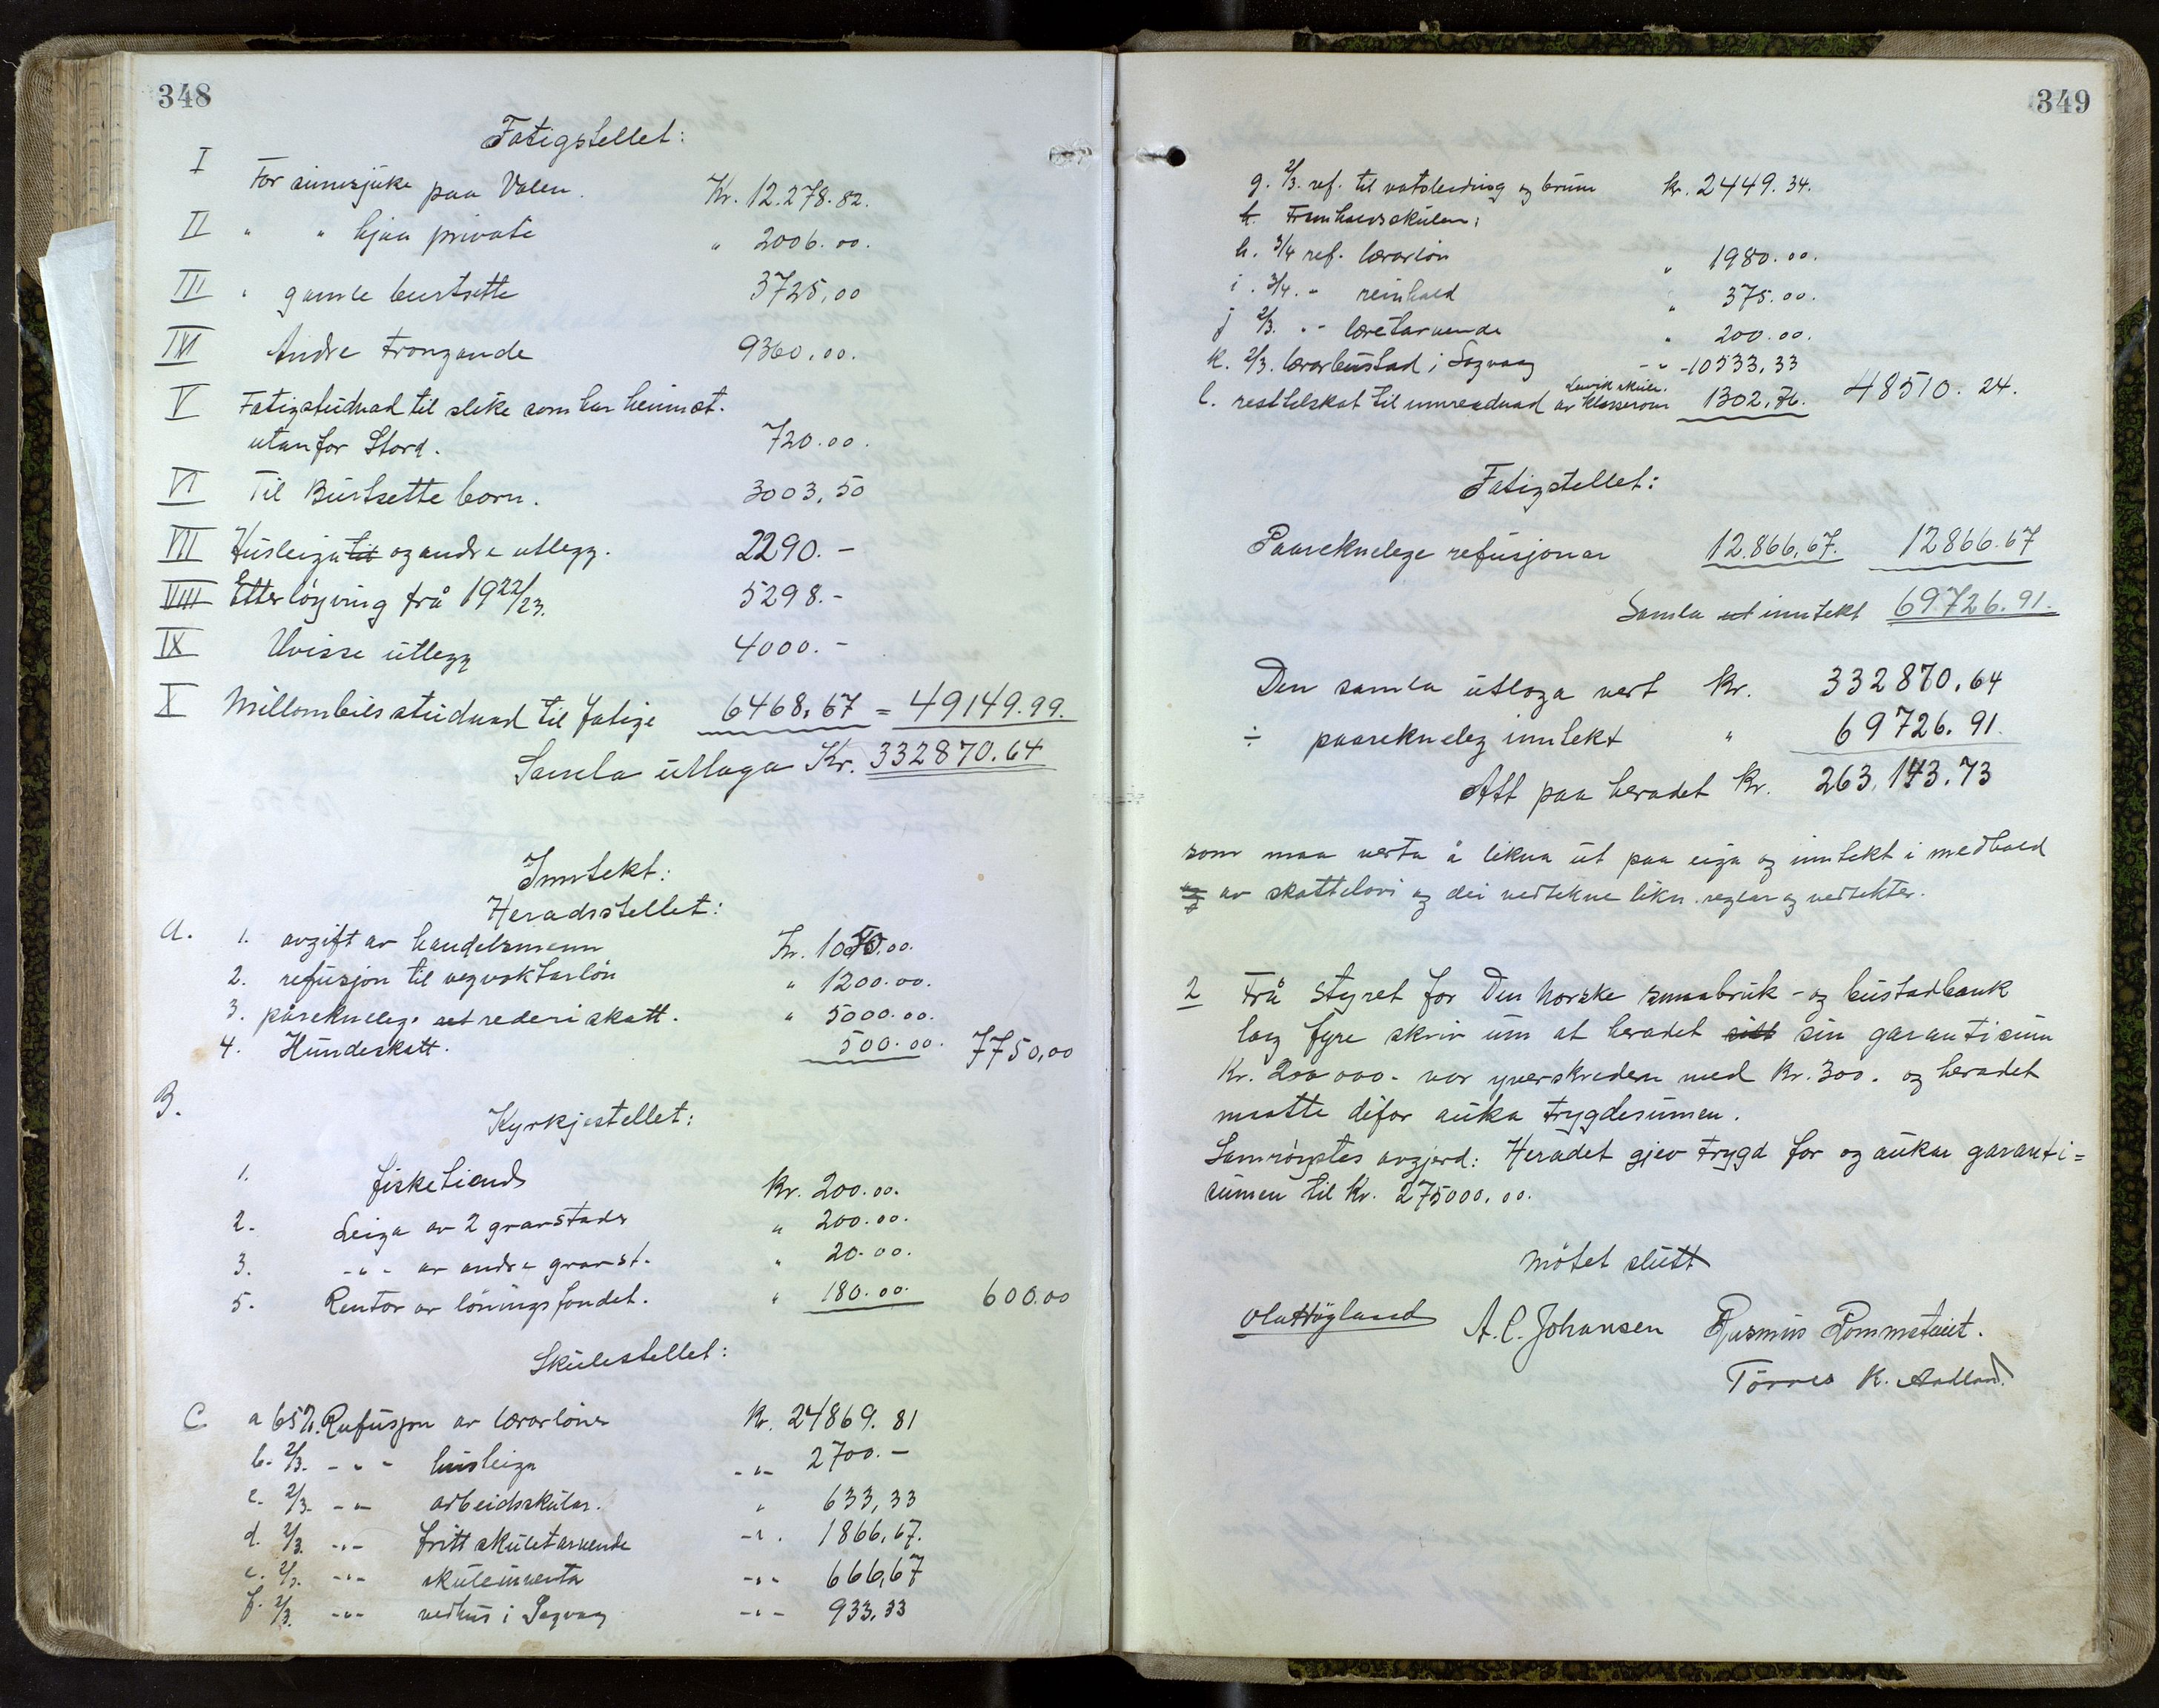 348
Fatigstellet:
I For sinnsjuke paa Valen. Kr. 12.278.82.
II " " hjaa private " 2006.00.
III " gamle burtsette 3725,00
IV Andre trongande 9360,00.
V Fatigstudnad til slike som har heimst.
utanfor Stord. 720.00.
VI Til Burtsette born. 3003,50
VII Husleiga til og andre utlegg. 2290.-
VIII Etterløyving frå 1922/23. 5298.-
IX Uvisse utlegg 4000.-
X Millombils studnad til fatige 6468,67 = 49149.99.
Samla utlaga Kr. 332870.64
Inntekt:
Heradsstellet:
A. 1. avgift av handelsmenn Kr. 1050.00.
2. refusjon til vegvaktarløn " 1200.00.
3. påreknelege rederiskatt. " 5000.00.
4. Hundeskatt. 500.00. 7750,00
B.
Kyrkjestellet:
1. fisketiend Kr. 200.00.
2. Leiga av 2 gravstader " 200.00.
3. -"- av andre gravst. " 20.00.
5. Rentor av löningsfondet. " 180.00. 600.00
Skulestellet:
C a 65%. Refusjon av lærarløner Kr. 24869.81
b. 2/3. -"- husleiga -"- 2700.-
c. 2/3. -"- arbeidsskular. " 633,33
d. 2/3. -"- fritt skuletarvende -"- 1866,67.
e. 2/3. -"- skuleinventa -"- 666,67
f. 2/3. -"- vedhus i Sagvaag -"- 933,33
349
g. 2/3. ref. til vatsleidning og brunn kr. 2449.34.
h. Framhaldsskulen:
h. 3/4 ref. lærarløn " 1980.00.
i. 3/4. " reinhald " 375.00.
j 2/3. -"- læretarvende " 200.00.
k. 2/3. lærarbustad i Sagvaag -"- 10533,33
l. resttilskot til innreidnad av klasserom Leirvik skule. 1302,76. 48510.24.
Fatigstellet:
Paareknelege refusjonar 12.866,67. 12866.67
Samla ut inntekt 69.726.91.
Den samla utloga vert Kr. 332870,64
÷ paarekneleg inntekt " 69726.91.
Att paa heradet Kr. 263.143.73
som maa verta å likna ut paa eiga og inntekt i medhald
og av skattelovi og dei vedtekne likn. reglar og vedtekter.
2 Frå Styret for Den Norske smaabruk- og bustadbank
laag fyre skriv um at heradet sitt sin garantisum
Kr. 200 000.- var yverskreden med Kr. 300. og heradet
maatte difor auka trygdesumen.
Samrøystes avgjerd: Heradet gjev trygd for og aukar garanti=
sumen til Kr. 275000,00.
Møtet slutt
Ola Høyland A. C. Johansen Rasmus Rommetveit.
Tørres K. Aadland.